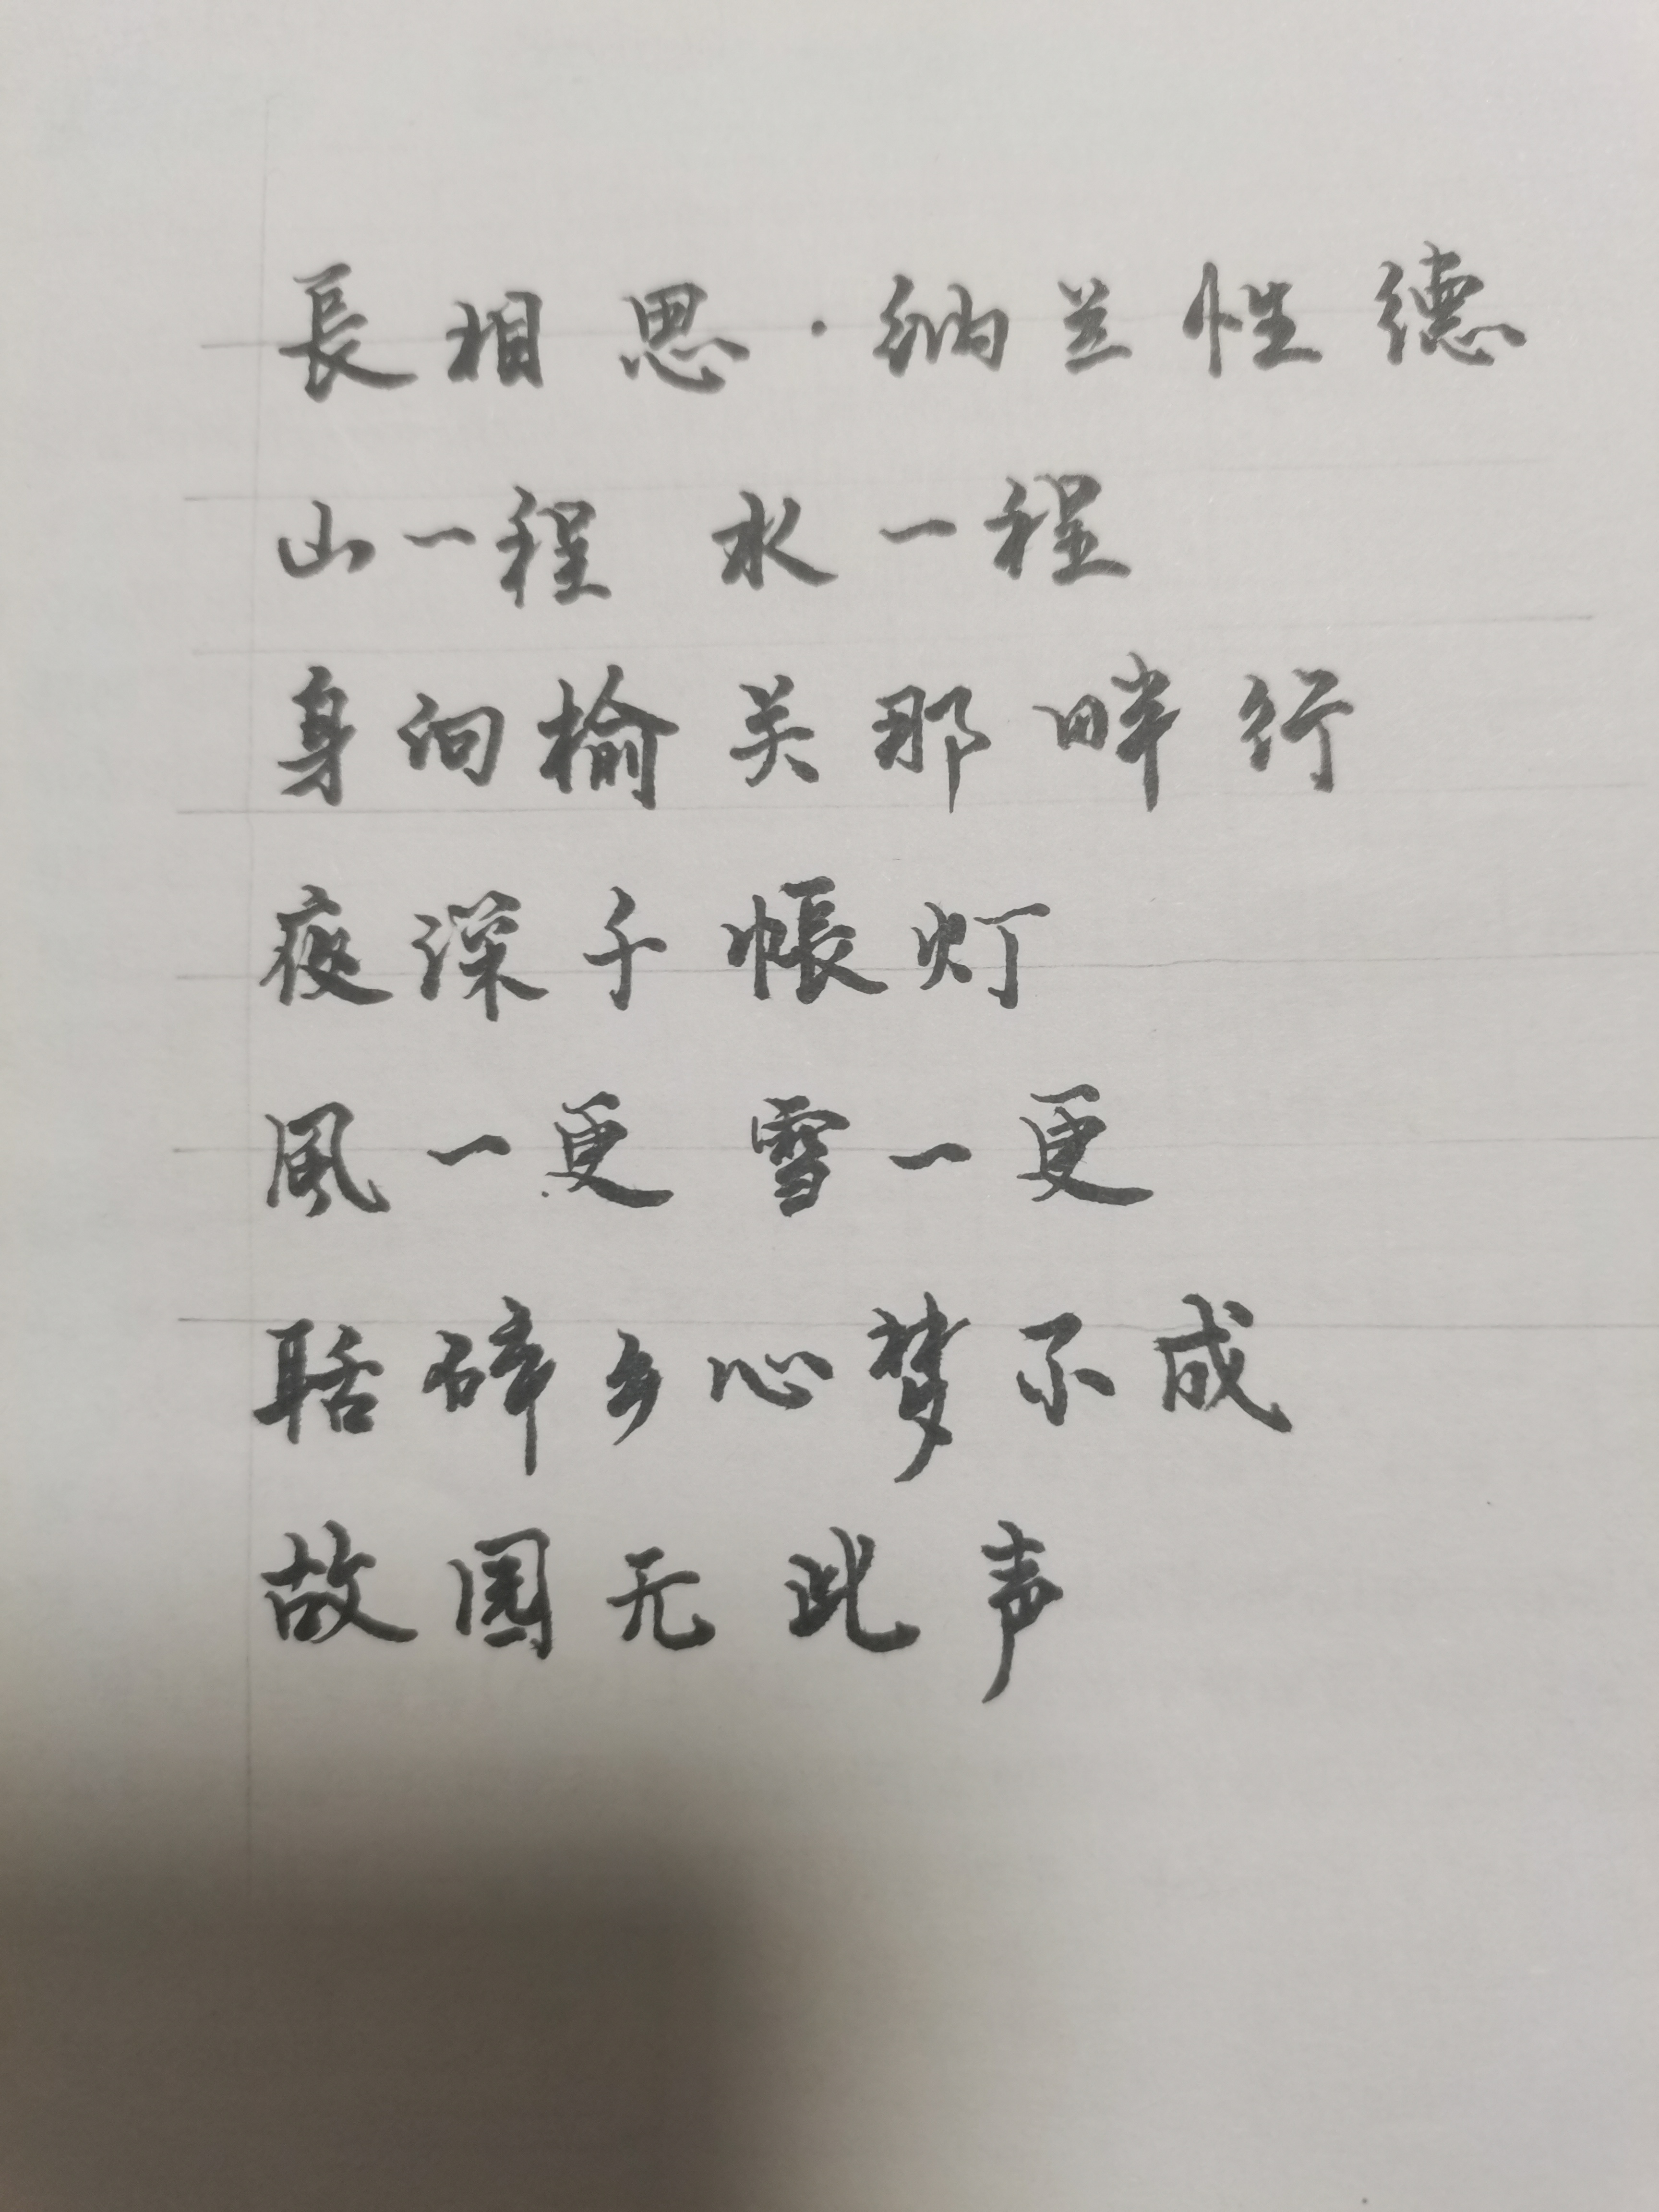 長相思·纳兰性德
山一程 水一程
身向榆关那畔行
夜深千帳灯
風一更 雪一更
聒碎乡心梦不成
故園无此声